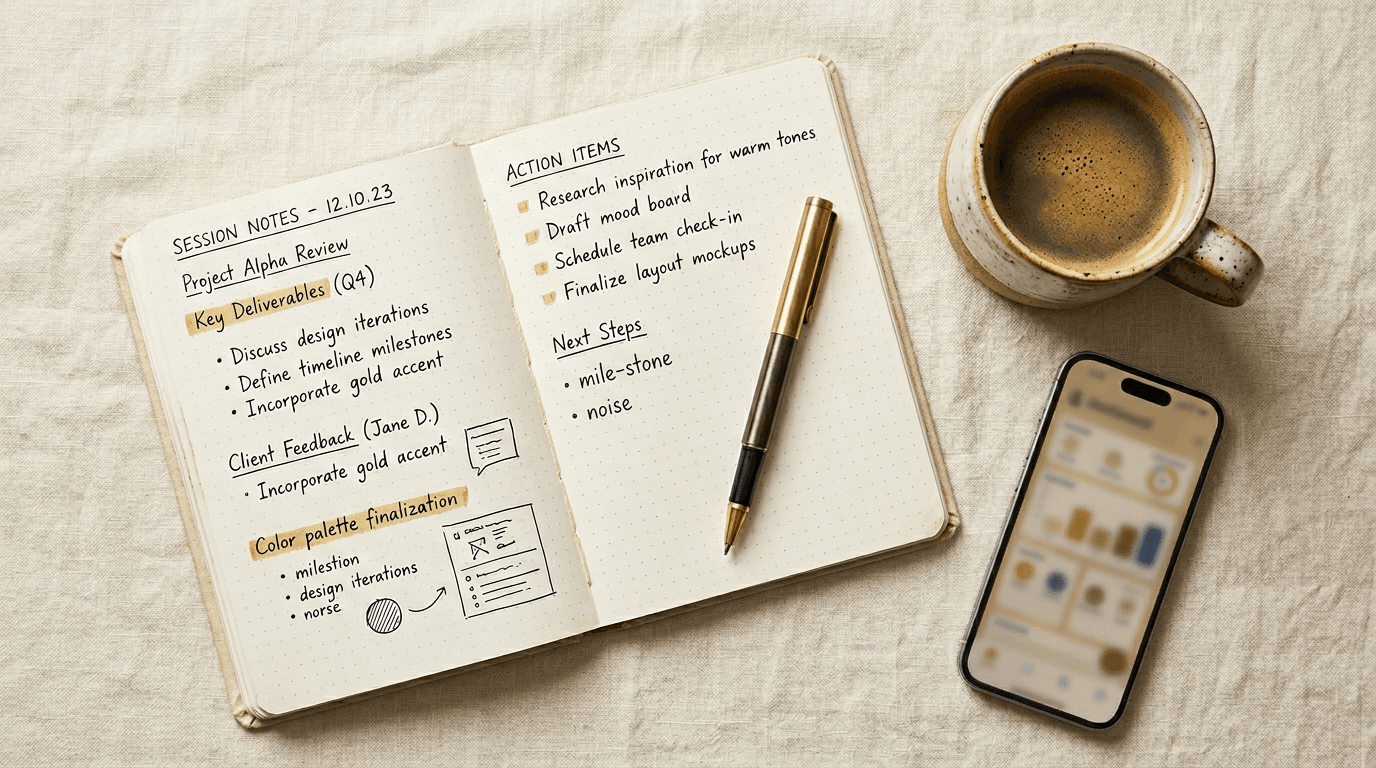 SESSION NOTES – 12.10.23
Project Alpha Review
Key Deliverables (Q4)
• Discuss design iterations
• Define timeline milestones
• Incorporate gold accent
Client Feedback (Jane D.)
• Incorporate gold accent
Color palette finalization
• milestion
• design iterations
• norse
ACTION ITEMS
Research inspiration for warm tones
Draft mood board
Schedule team check-in
Finalize layout mockups
Next Steps
• mile-stone
• noise